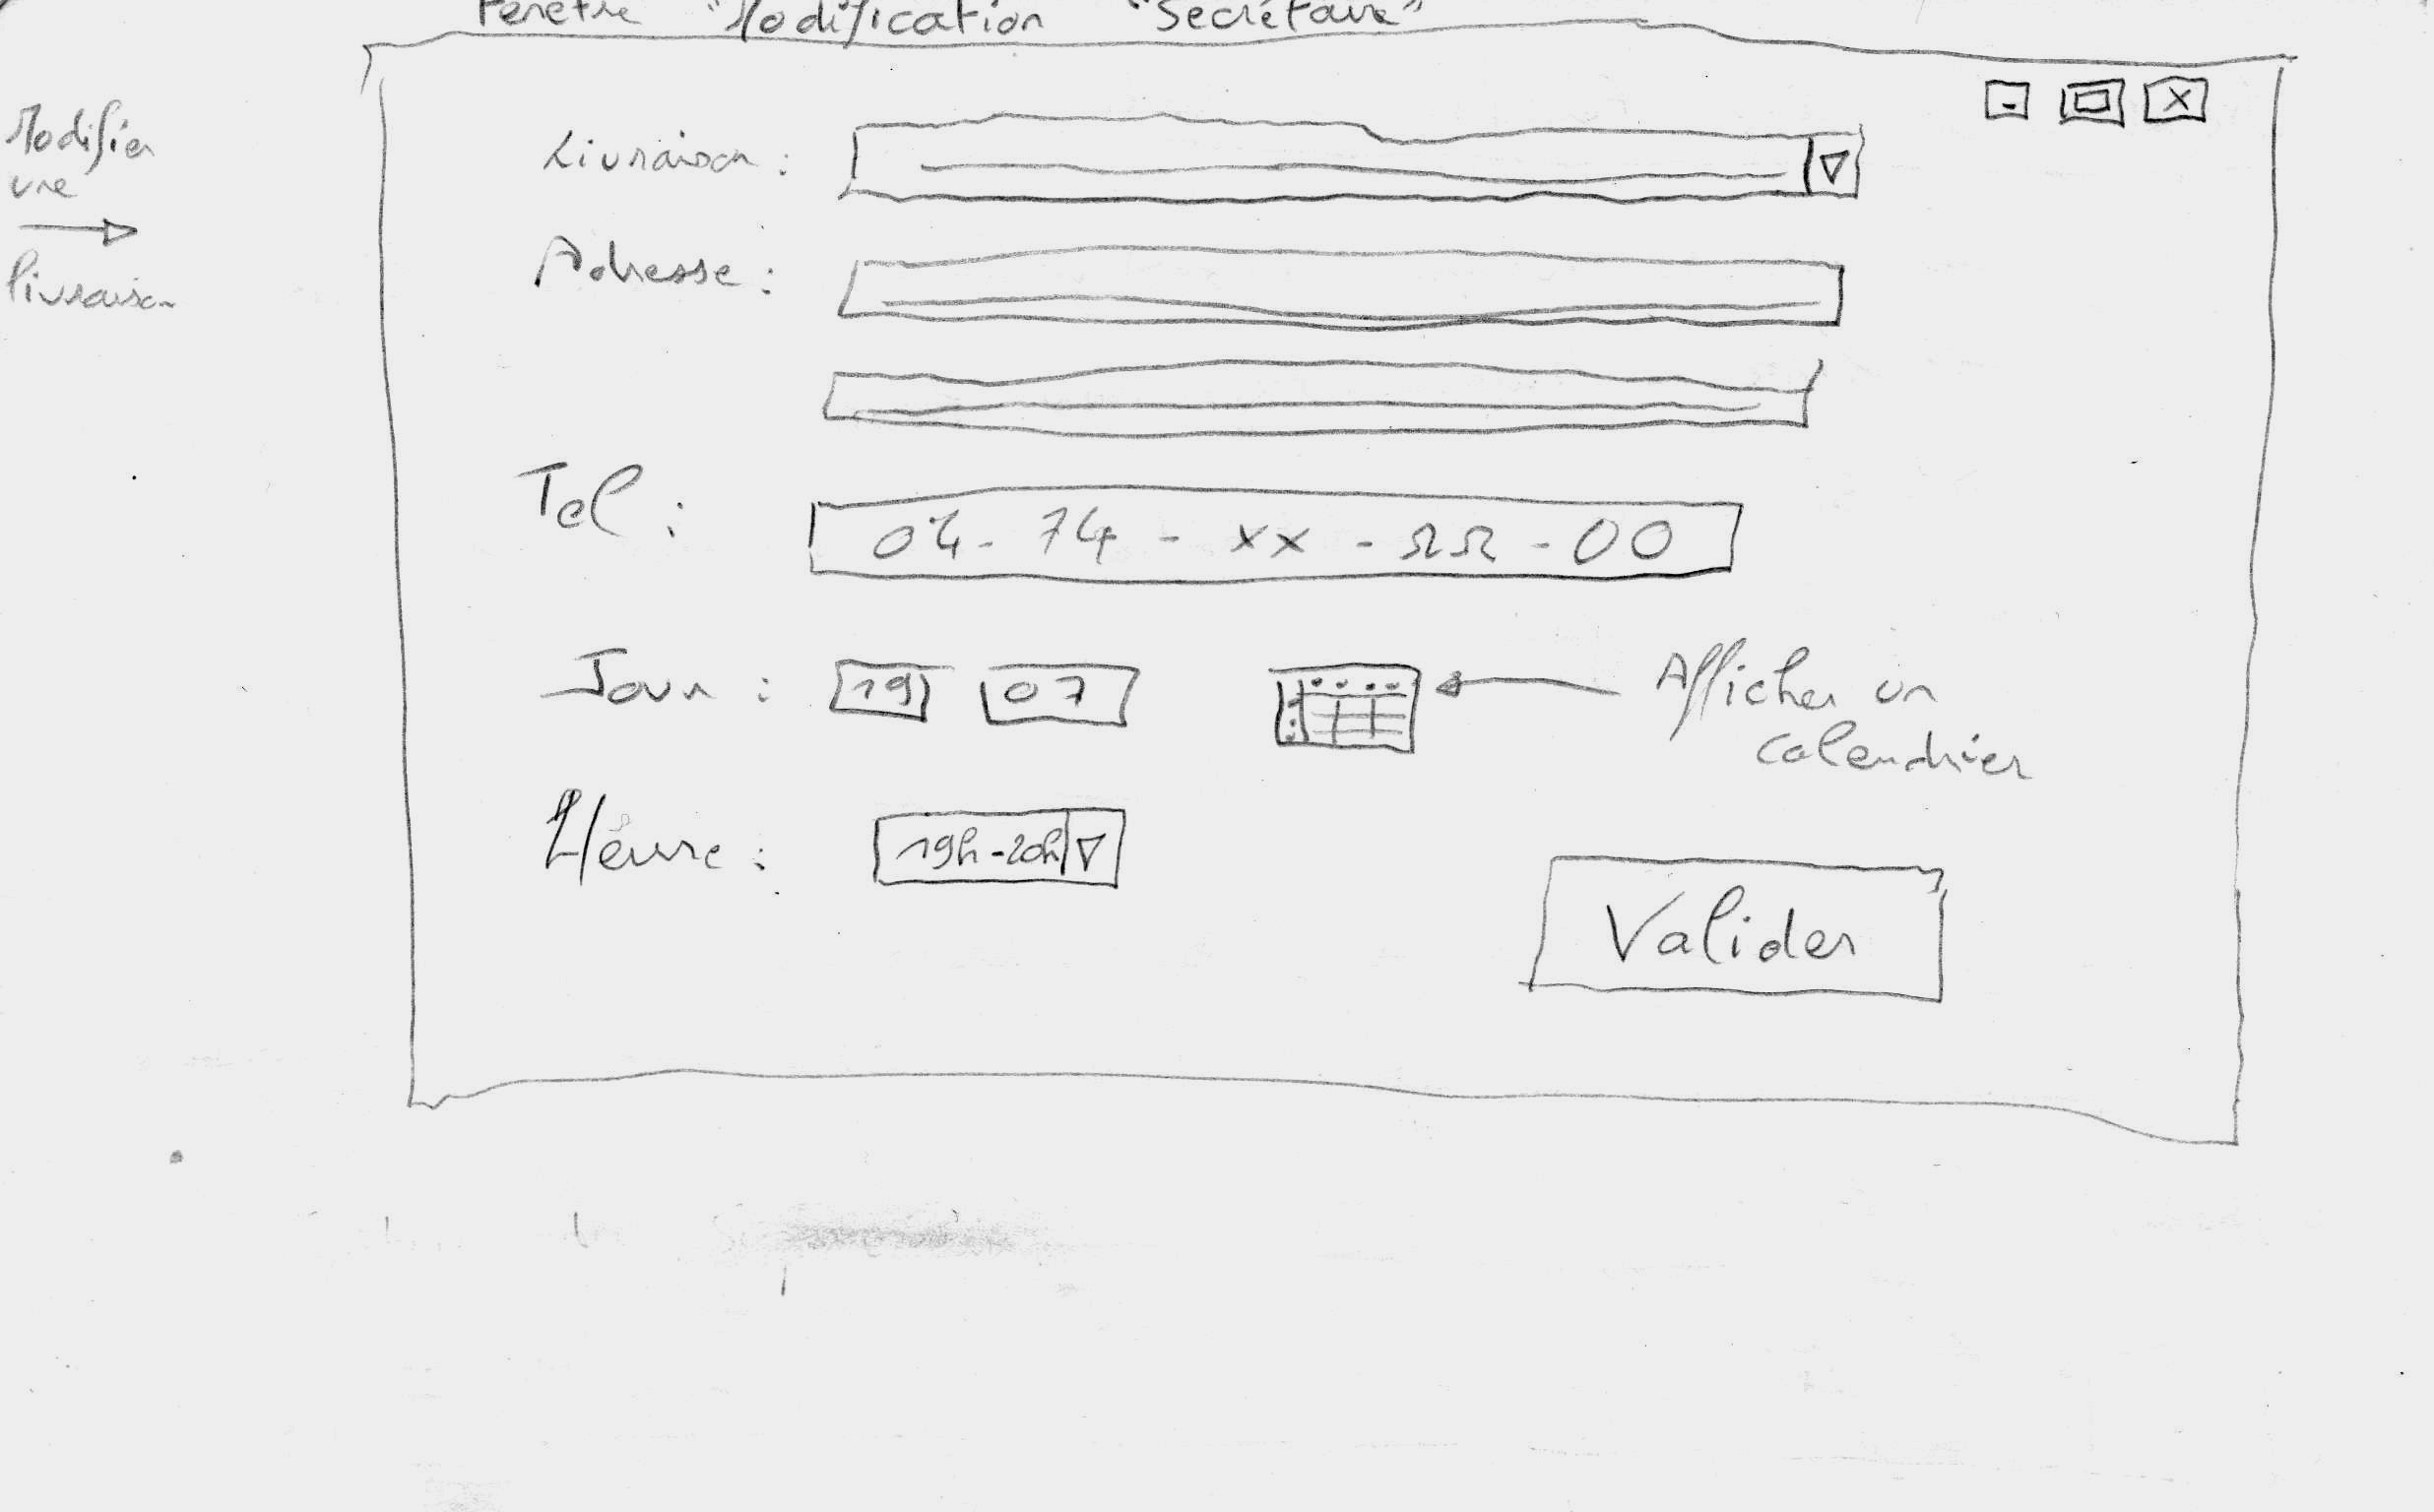 Fenêtre "Modification "Secrétaire"
Modifier
une
livraison
Livraison :
Adresse :
Tel :
04 - 74 - xx - ΩΩ - 00
Jour : 19 07
Afficher un
calendrier
Heure : 19h-20h
Valider